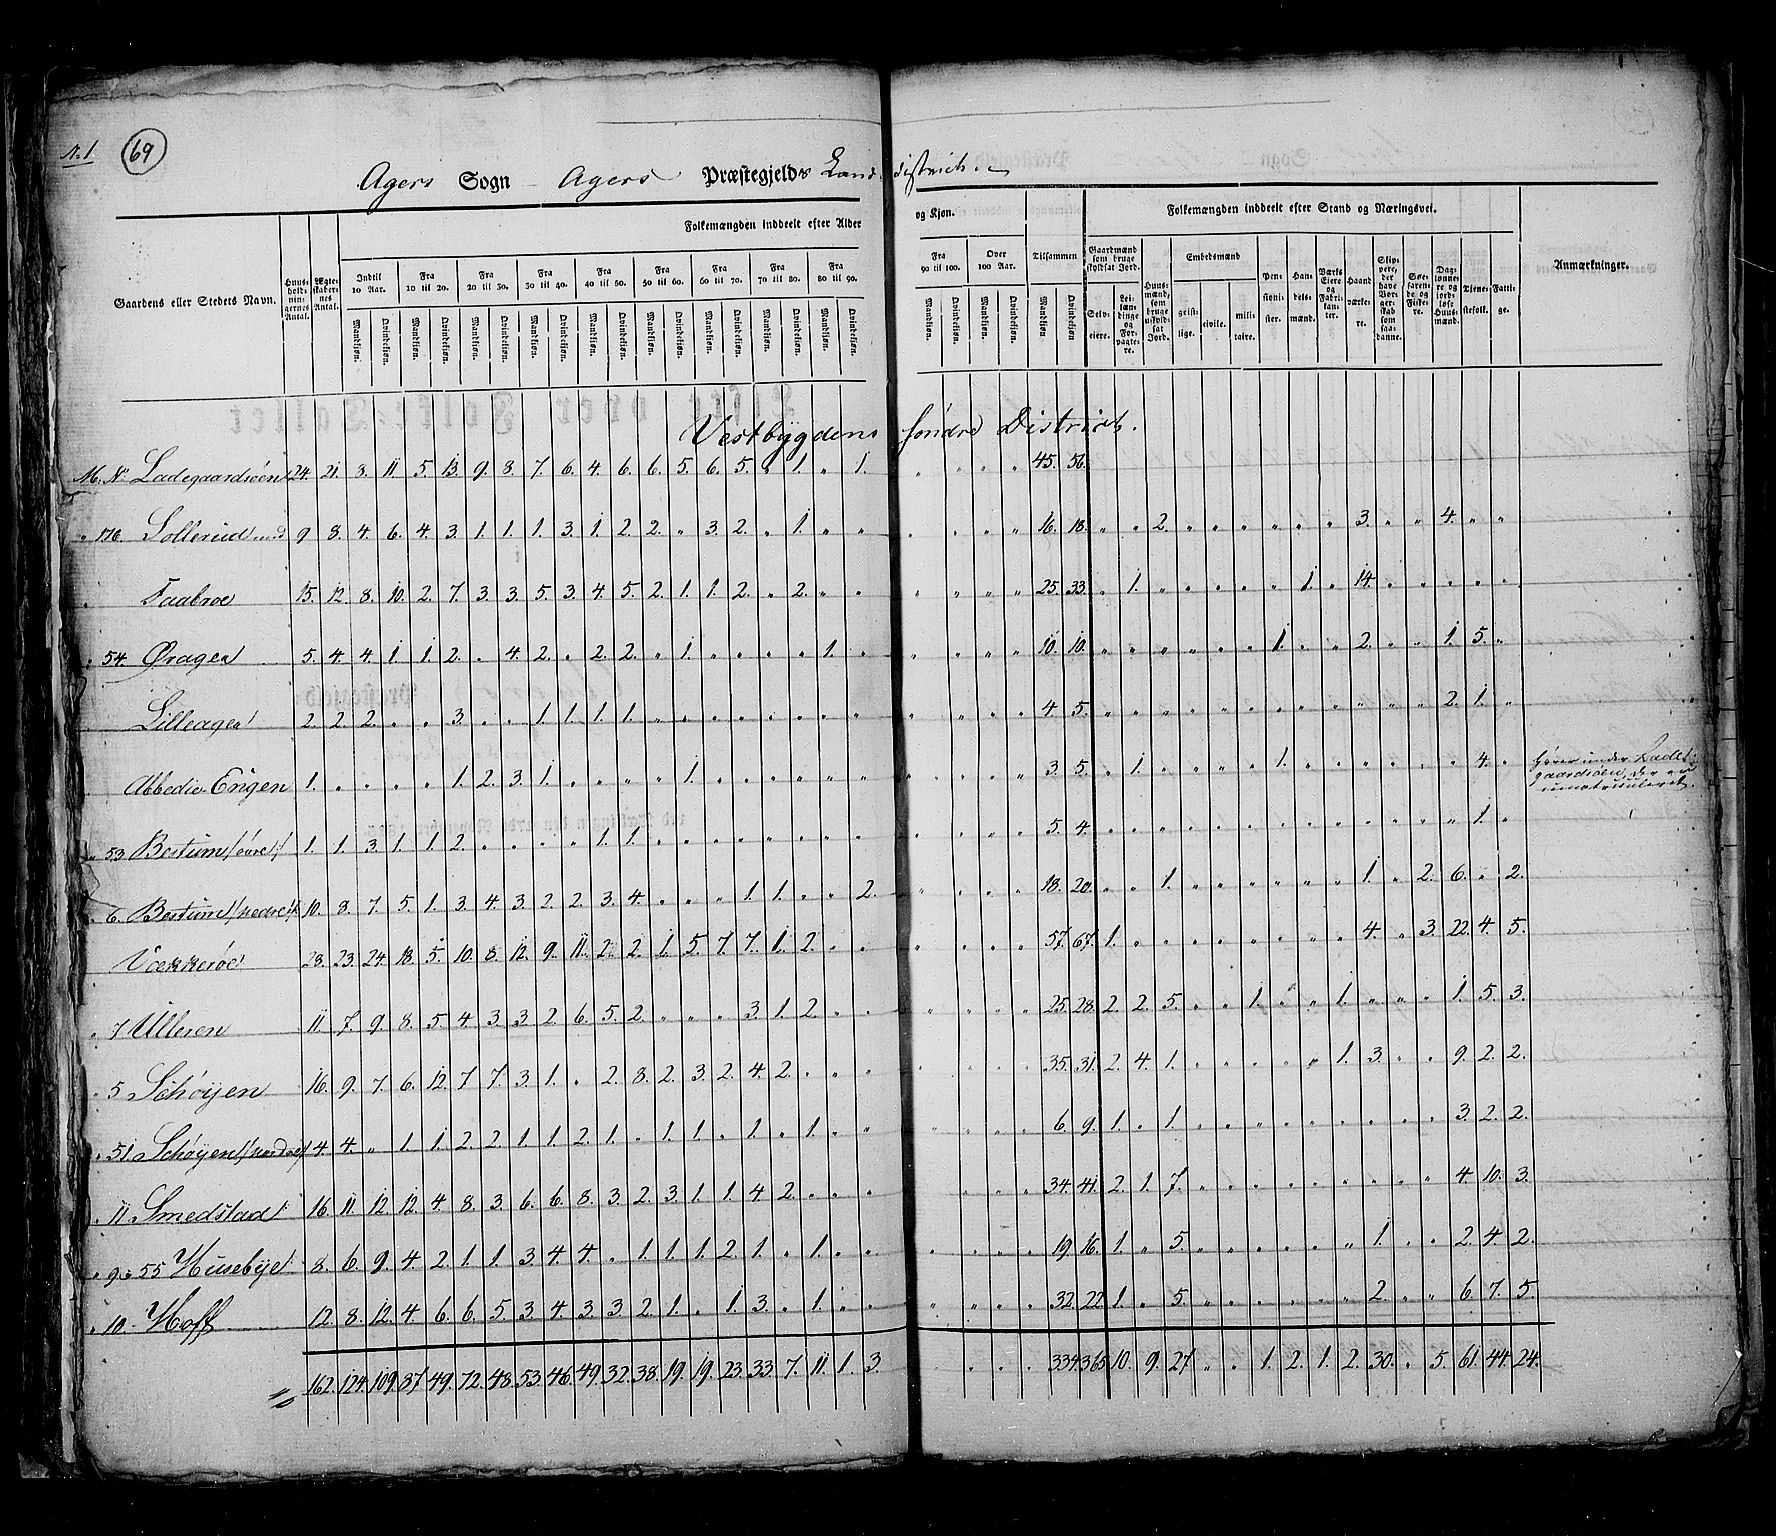 N. 1 69
Agers Sogn - Agers Præstegjelds Lands districht
Folkemængden inddeelt efter Alder og Kjøn. Folkemængden inddeelt efter Stand og Næringsvei.
Gaardens eller Stedets Navn. Huusholdningernes Antal. Ægteskabernes Antal. Indtil 10 Aar. Fra 10 til 20. Fra 20 til 30. Fra 30 til 40. Fra 40 til 50. Fra 50 til 60. Fra 60 til 70. Fra 70 til 80. Fra 80 til 90. Fra 90 til 100. Over 100 Aar. Tilsammen Gaardmænd som bruge skyldsat Jord. Huusmænd, som bruge uskyldsat Jord. Embedsmænd Pensionister. Handelsmænd. Værks Eiere og Fabrikanter. Haandværkere. Slippere, der have Borgerskab som saadanne. Søefarende og Fiskere. Daglønnere og jordløse Huusmænd. Tjenestefolk. Fattige. Anmærkninger.
Mandkjøn. Qvindekjøn. Mandkjøn. Qvindekjøn. Mandkjøn. Qvindekjøn. Mandkjøn. Qvindekjøn. Mandkjøn. Qvindekjøn. Mandkjøn. Qvindekjøn. Mandkjøn. Qvindekjøn. Mandkjøn. Qvindekjøn. Mandkjøn. Qvindekjøn. Mandkjøn. Qvindekjøn. Mandkjøn. Qvindekjøn. Mandkjøn. Qvindekjøn. Selveiere. Leilændinge og Forpagtere. geistlige. civile. militaire.
Vestbygdens søndre District.
M. No Ladegaardsøen 24. 21. 8. 11. 5. 13. 9. 8. 7. 6. 4. 6. 6. 5. 6. 5. " 1. " 1. " " " " 45. 56.
" 176 Sollerud 9 8. 4. 6. 4. 3. 1. 1. 1. 3. 1. 2. 2. " 3. 2. " 1. " " " " " " 16. 18. " " 2. " " " " " " 3. " " 4. " "
" Faabroe 15. 12. 8. 10. 2. 7. 3. 3. 5. 3. 4. 5. 2. 1. 1. 2. " 2. " " " " " " 25. 33. " 1. " " " " " 1. " 14. " " " " "
" 54. Øragen 5. 4. 4. 1. 1. 2. " 4. 2. " 2. 2. " 1. " " " " 1. " " " " " 10. 10. " " " " " " 1. " " 2. " " 1. 5. "
Lilleager 2. 2. 2. " " 3. " " 1. 1. 1. 1. " " " " " " " " " " " " 4. 5. " " " " " " " " " " " " 2. 1. "
Abbedie Engen 1. " " " " 1. 2. 3. 1. " " " " 1. " " " " " " " " " " 3. 5. " 1. " " " " 1. " " " " " " 4. " hører under Ladegaardsøen, der er umatriculeret.
" 53 Bestum /øvre/ 1. 1. 3. 1. 1. 2. " " " " 1. 1. " " " " " " " " " " " " 5. 4. " " " " " " " " " " " " " 1. "
" 6. Bestum /nedre/ 10. 8. 7. 5. 1. 3. 4. 3. 2. 2. 3. 4. " " " 1. 1. " " 2. " " " " 18. 20. " " 1. " " " " " " 1. " 2. 6. " 2.
Vækkerøe 28. 23. 24. 18. 5. 10. 8. 12. 9. 11. 2. 2. 1. 5. 7. 7. 1. 2. " " " " " " 57. 67. 1. " " " " " " " " 4. " 3. 22. 4. 5.
" 7 Ulleren 11. 7. 9. 8. 5. 4. 3. 3. 2. 6. 5. 2. " " " 3. 1. 2. " " " " " " 25. 28. 2. 2. 5. " " 1. " " 1. " " " 1. 5. 3.
" 5 Schøyen 16. 9. 7. 6. 12. 7. 7. 3. 1. " 2. 8. 2. 3. 2. 4. 2. " " " " " " " 35. 31. 2. 4. 1. " " " " " 1. 3. " " 9. 2. 2.
" 51. Schøyen /nordre/ 4. 4. " 1. 1. 2. 2. 1. 1. 2. 1. " 1. 1. " 1. " 1. " " " " " " 6. 9. 1. " 1. " " " " " " " " " 3. 2. 2.
" 11 Smedstad 16. 11. 12. 12. 4. 8. 3. 6. 6. 8. 3. 2. 3. 1. 1. 4. 2. " " " " " " 34. 41. 2. 1. 7. " " " " " " " " " 4. 10. 3.
" 9 55 Husebye 8. 6. 9. 4. 2. 1. 1. 3. 4. 4. " 1. 1. 1. 2. 1. " 1. " " " " " " 19. 16. 1. " 5. " " " " " " 1. " " 2. 4. 2.
" 10. Hoff 12. 8. 12. 4. 6. 6. 5. 3. 4. 3. 3. 2. 1. " 1. 3. " 1. " " " " " " 32. 22. 1. " 5. " " " " " " 2. " " 6. 7. 5.
162. 124. 109. 87. 49. 72. 48. 53. 46. 49. 32. 38. 19. 19. 23. 33. 7. 11. 1. 3. " " " 334. 365. 10. 9. 27. " " 1. 2. 1. 2. 30. " 5. 61. 44. 24.